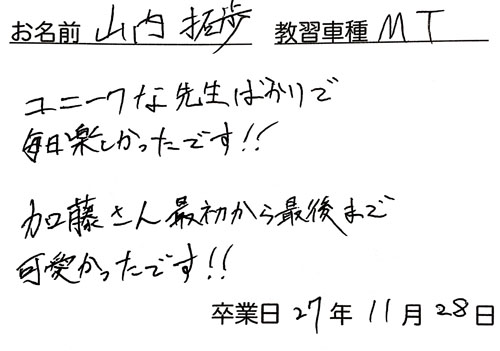 お名前 山内 拓歩 教習車種 MT
ユニークな先生ばかりで
毎日楽しかったです!!
加藤さん最初から最後まで
可愛かったです!!
卒業日 27年 11月 28日